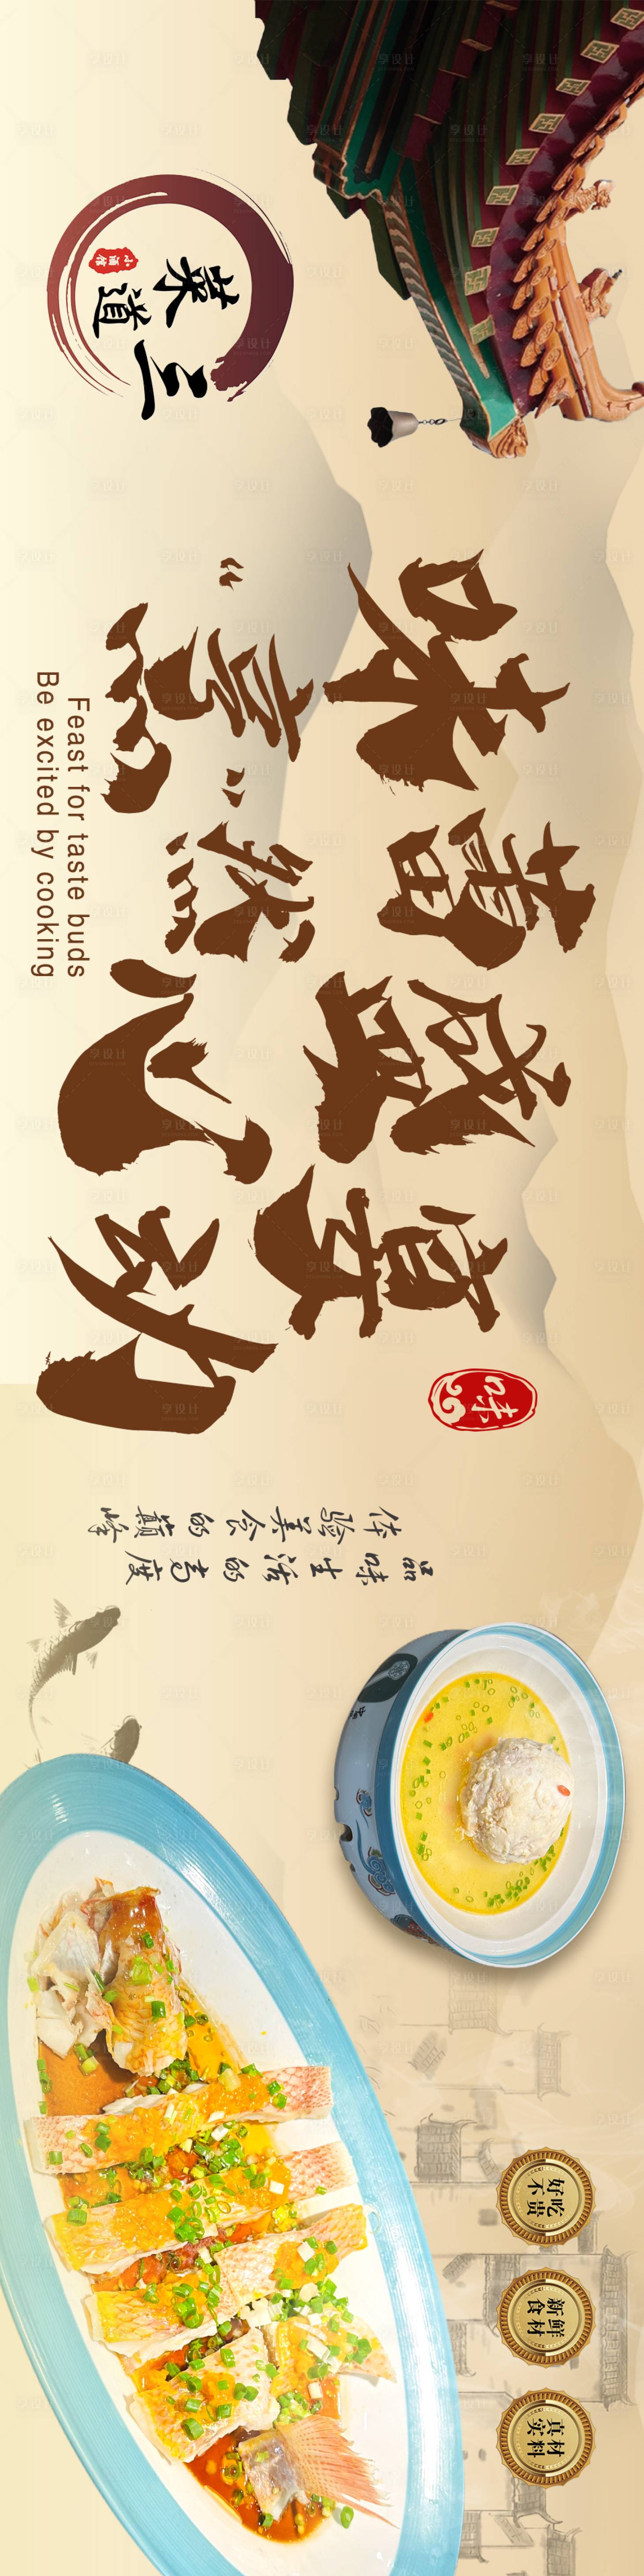 三
菜道
小酒馆
味蕾盛宴
味
“烹”然心动
Feast for taste buds
Be excited by cooking
品味生活的高度
体验美食的巅峰
好吃
不贵
新鲜
食材
真材
实料
享设计